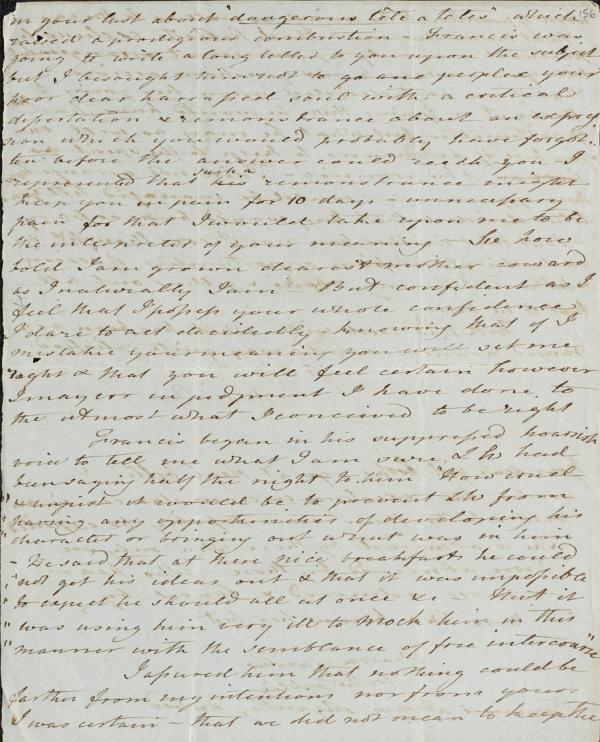 in your last about "dangerous tête a têtes" which 156
raised a prodigious combustion - Francis was
going to write a long letter to you upon the subject
but I besought him not to go and perplex your
poor dear harrassed soul with a critical
disertation & remonstrance about an expres
sion which you would probably have forgot.
ten before the answer could reach you - I
represented that such a his remonstrance might
keep you in pain for 10 days - unnecessary
pain for that I would take upon me to be
the interpreter of your meaning - See how
bold I am grown dearest mother coward
as I naturally I am - But confident as I
feel that I possess your whole confidence
I dare to act decidedly - knowing that if I
mistake your meaning you will set me
right & that you will feel certain however
I may err in judgment I have done to
the utmost what I conceived to be right
Francis began in his suppressed hoarsish
voice to tell me what I am sure LW had
been saying half the night to him "How cruel
"& unjust it would be to prevent LW from
"having any opportunities of developing his
"character or bringing out what was in him
- He said that at these nice breakfasts he could
"not get his ideas out & that it was impossible
"to expect he should all at once &c - That it
"was using him very ill to mock him in this
"manner with the semblance of free intercourse"
I assured him that nothing could be
farther from my intentions nor from yours
I was certain - that we did not mean to keep the